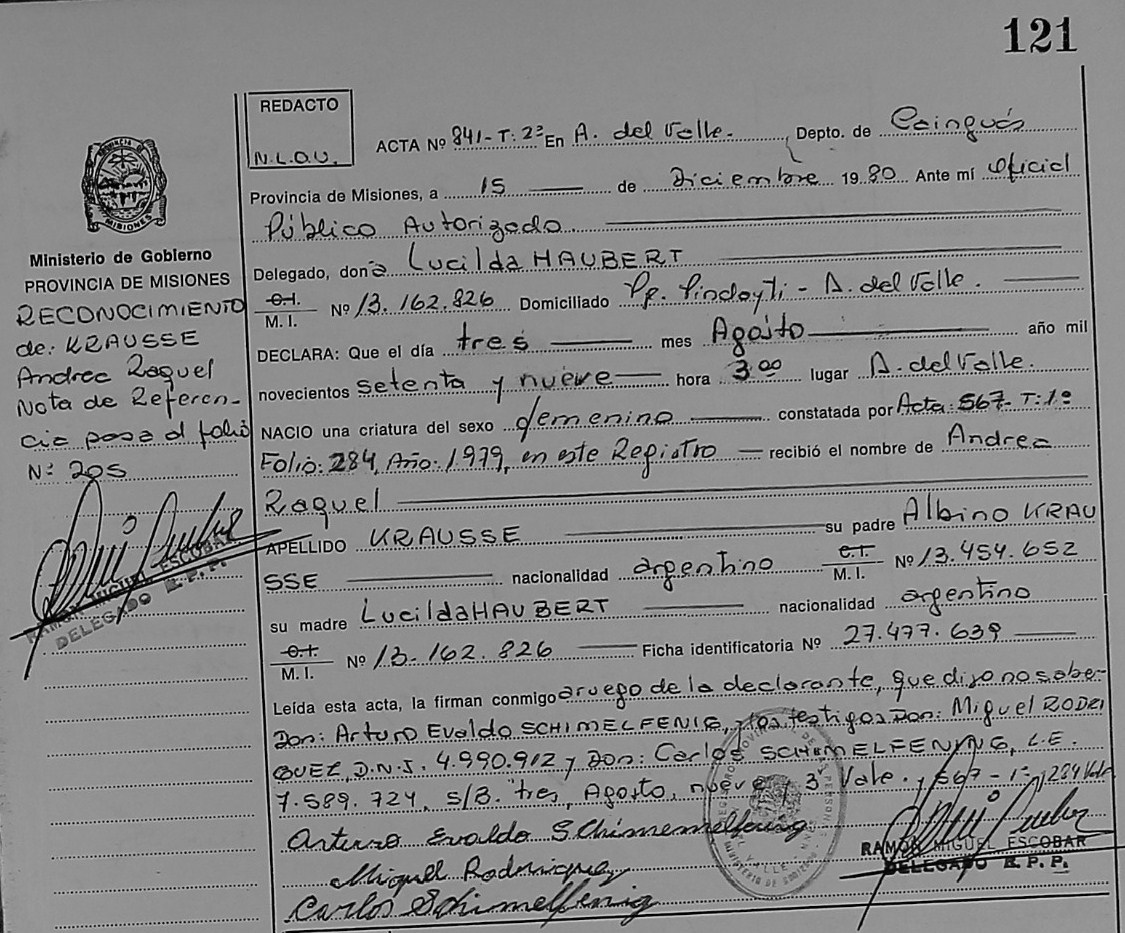 121
REDACTO
N.L.O.U.
ACTA Nº 841-T:2ª En A. del Valle. Depto. de Caінguás
Provincia de Misiones, a 15 de Diciembre 1980 Ante mí Oficial
Público Autorizado
Delegado, doña Lucilda HAUBERT
C.I.
M. I. Nº 13.162.826 Domiciliado Pindayti - A. del Valle.
DECLARA: Que el día tres mes Agosto año mil
novecientos setenta y nueve hora 3.00 lugar A. del Valle.
NACIO una criatura del sexo femenino constatada por Acta: 567- T:1º
Folio: 284, Año: 1.979, en este Registro recibió el nombre de Andrea
Raquel
APELLIDO KRAUSSE su padre Albino KRAU
SSE nacionalidad argentino C.I.
M. I. Nº 13.454.652
su madre Lucilda HAUBERT nacionalidad argentino
C.I.
M. I. Nº 13.162.826 Ficha identificatoria Nº 27.477.639
Leída esta acta, la firman conmigo a ruego de la declarante, que dijo no saber
Don: Arturo Evaldo SCHIMELFENIG, y los testigos Don: Miguel RODRI
GUEZ, D.N.I. 4.990.912 y Don: Carlos SCHIMELFENING, L.E.
7.589.724, S/B. tres, Agosto, nueve y 3 Vale. y 567-1º, 284 Vale
Arturo Evaldo
Miguel Rodriguez
Carlos Schimelfenig
RAMON MIGUEL ESCOBAR
DELEGADO R. P. P.
PROVINCIA DE
MISIONES
Ministerio de Gobierno
PROVINCIA DE MISIONES
RECONOCIMIENTO
de: KRAUSSE
Andrea Raquel
Nota de Referen-
cia pasa al folio
Nº 205
RAMON MIGUEL ESCOBAR
DELEGADO R. P. P.